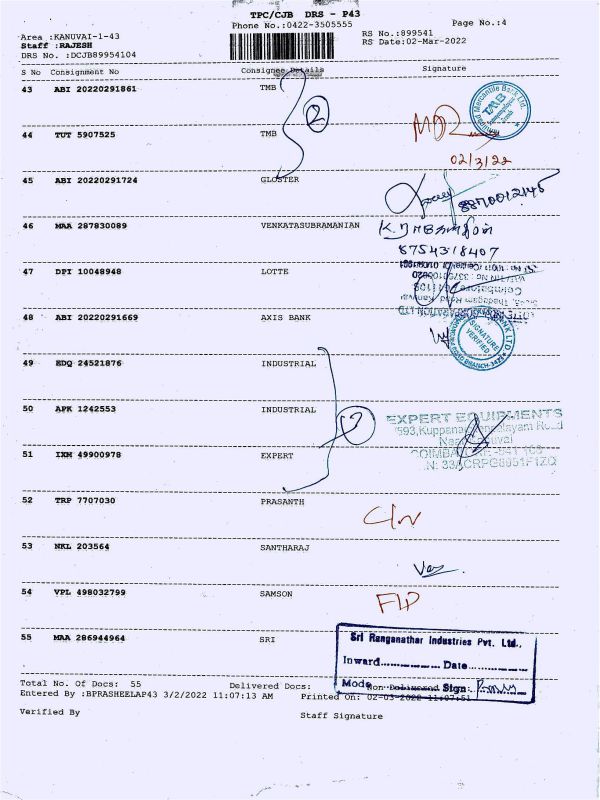 TPC/CJB DRS - P43
Phone No.:0422-3505555
Page No.:4
Area :KANUVAI-1-43
Staff :RAJESH
DRS No. :DCJB89954104
RS No.:899541
RS Date:02-Mar-2022
S No Consignment No Consignee Details Signature
43 ABI 20220291861 TMB
2
Mercantile Bank Ltd.
TMB
44 TUT 5907525 TMB
02/3/22
45 ABI 20220291724 GLOSTER
8870012145
46 MAA 287830089 VENKATASUBRAMANIAN
8754318407
47 DPI 10048948 LOTTE
48 ABI 20220291669 AXIS BANK
SIGNATURE VERIFIED
49 EDQ 24521876 INDUSTRIAL
50 APK 1242553 INDUSTRIAL
EXPERT EQUIPMENTS
51 IXM 49900978 EXPERT
52 TRP 7707030 PRASANTH
53 NKL 203564 SANTHARAJ
54 VPL 498032799 SAMSON
55 MAA 286944964 SRI
Sri Ranganathar Industries Pvt. Ltd.,
Inward............... Date...............
Mode Sign
Total No. Of Docs: 55 Delivered Docs: Non Delivered
Entered By :BPRASHEELAP43 3/2/2022 11:07:13 AM Printed On: 02-03-2022 11:07:51
Verified By Staff Signature